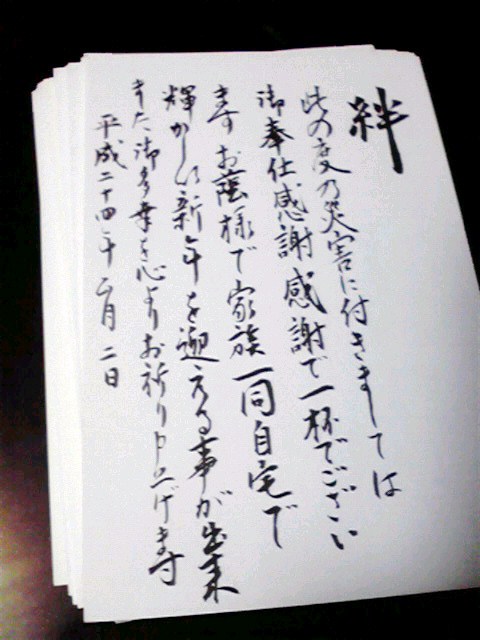 絆
此の度の災害に付きましては
御奉仕感謝感謝で一杯でござい
ます お蔭様で家族一同自宅で
輝かしい新年を迎える事が出来
また御多幸を心よりお祈り申上げます
平成二十四年 二月 二日